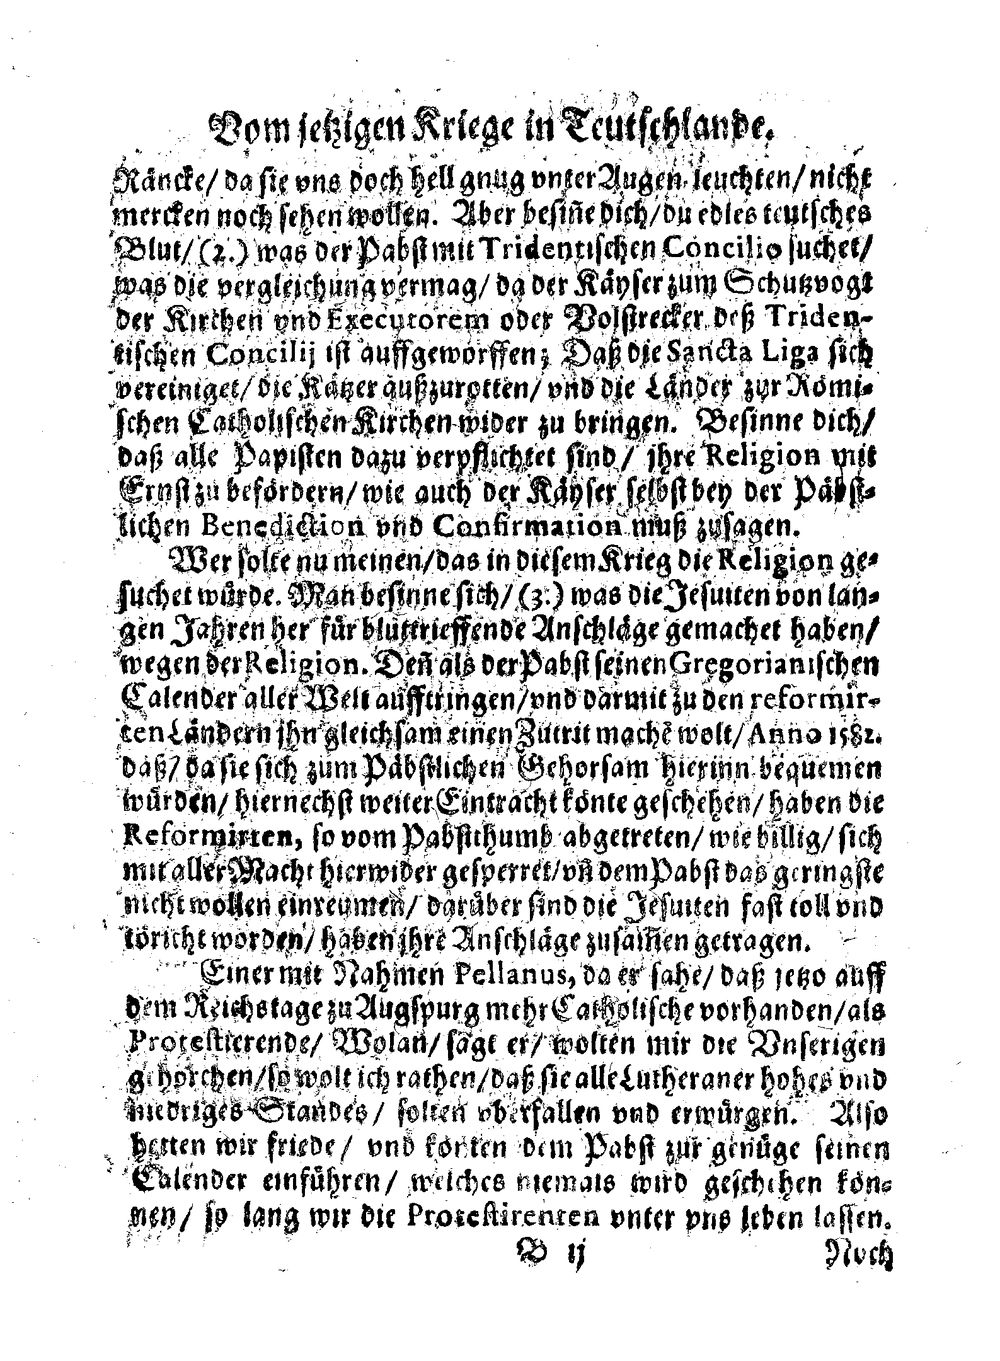 Vom jetzigen Kriege in Teutschlande.
Räncke/ da sie vns doch hell gnug vnter Augen leuchten/ nicht
mercken noch sehen wollen. Aber besiñe dich/ du edles teutsches
Blut/ (2.) was der Pabst mit Tridentischen Concilio suchet/
was die vergleichung vermag/ da der Käyser zum Schutzvogt
der Kirchen vnd Executorem oder Volstrecker deß Triden-
tischen Concilij ist auffgeworffen; Daß die Sancta Liga sich
vereiniget/ die Kätzer außzurotten/ vnd die Länder zur Römi-
schen Catholischen Kirchen wider zu bringen. Besinne dich/
daß alle Papisten dazu verpflichtet sind/ jhre Religion mit
Ernst zu befördern/ wie auch der Käyser selbst bey der Päbst-
lichen Benediction vnd Confirmation muß zusagen.
Wer solte nu meinen/ das in diesem Krieg die Religion ge-
suchet würde. Man besinne sich/ (3.) was die Jesuiten von lan-
gen Jahren her für bluttrieffende Anschläge gemachet haben/
wegen der Religion. Deñ als der Pabst seinen Gregorianischen
Calender aller Welt aufftringen/ vnd darmit zu den reformir-
ten Ländern jhn gleichsam einen Zutrit machē wolt/ Anno 1582.
daß/ da sie sich zum Päbstlichen Gehorsam hierinn bequemen
würden/ hiernechst weiter Eintracht könte geschehen/ haben die
Reformirten, so vom Pabsthumb abgetreten/ wie billig/ sich
mit aller Macht hierwider gesperret/ vñ dem Pabst das geringste
nicht wollen einreumen/ darüber sind die Jesuiten fast toll vnd
töricht worden/ haben jhre Anschläge zusam̃en getragen.
Einer mit Nahmen Pellanus, da er sahe/ daß jetzo auff
dem Reichstage zu Augspurg mehr Catholische vorhanden/ als
Protestierende/ Wolan/ sagt er/ wolten mir die Vnserigen
gehorchen/ so wolt ich rathen/ daß sie alle Lutheraner hohes vnd
niedriges Standes/ solten vberfallen vnd erwürgen. Also
hetten wir friede/ vnd konten dem Pabst zur genüge seinen
Calender einführen/ welches niemals wird geschehen kön-
nen/ so lang wir die Protestirenten vnter vns leben lassen.
B ij Noch